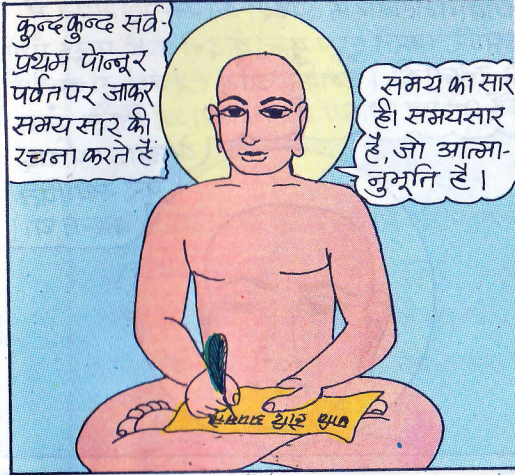 कुन्दकुन्द सर्व-
प्रथम पोन्नूर
पर्वत पर जाकर
समयसार की
रचना करते हैं
समय का सार
ही समयसार
है, जो आत्मा-
नुभूति है।